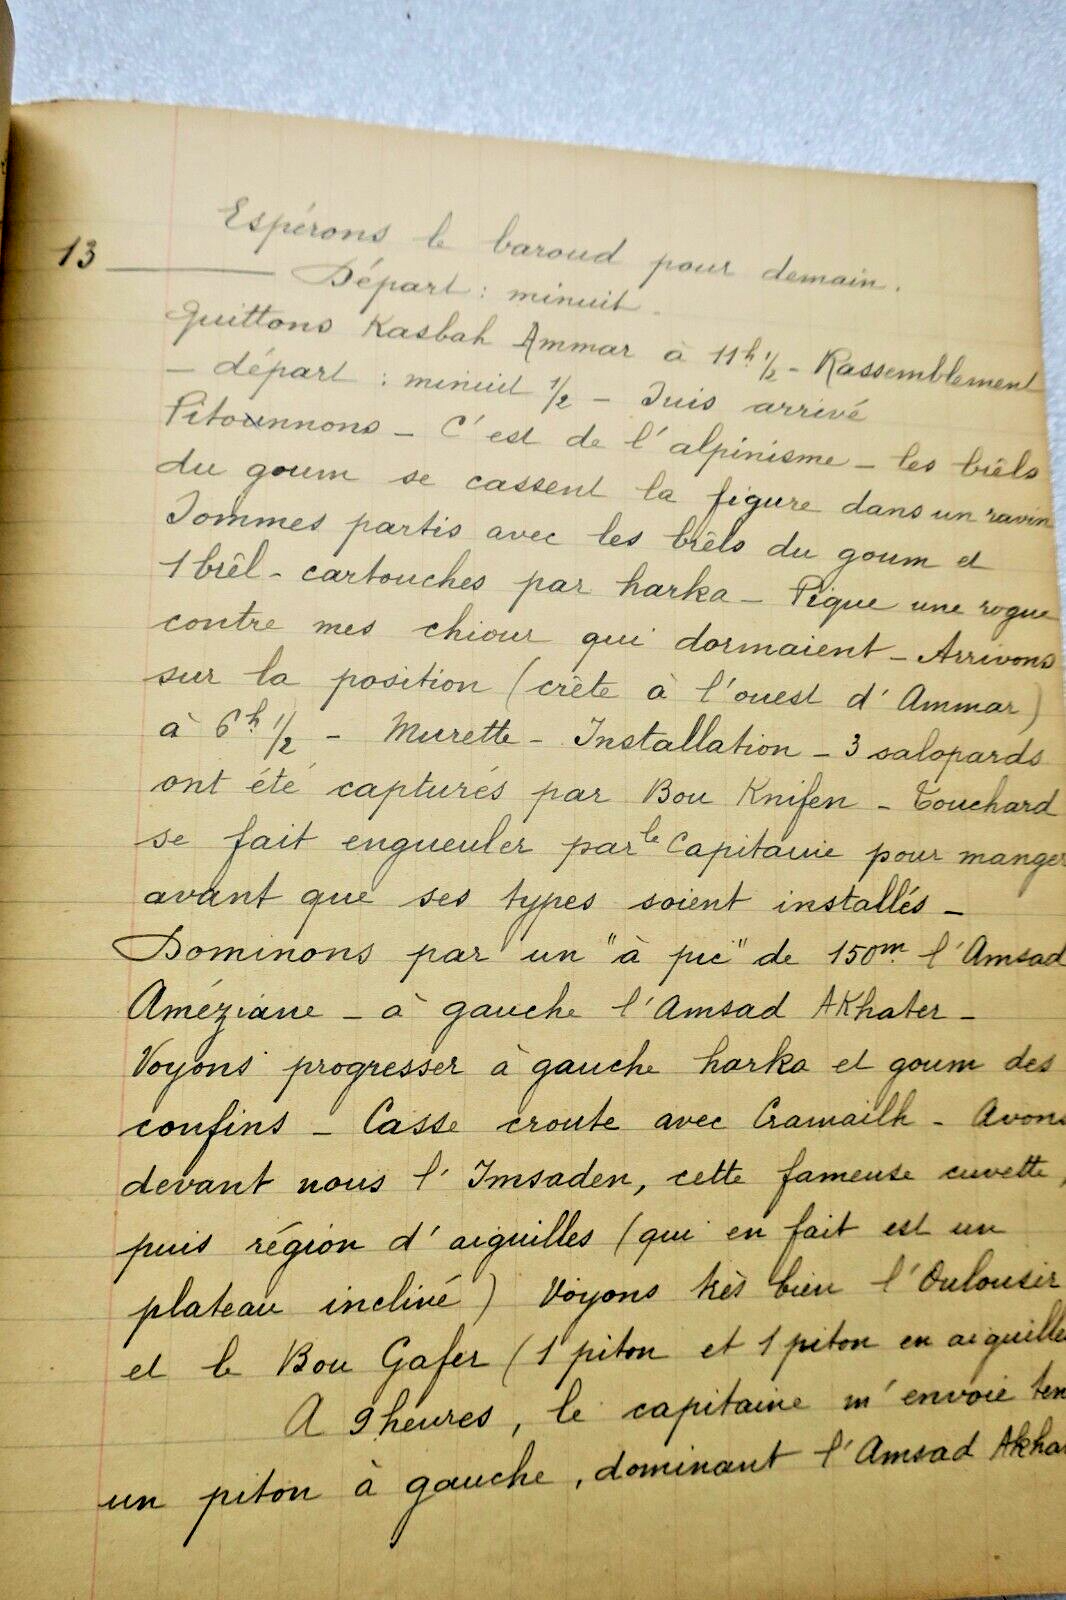 Espérons le baroud pour demain.
13 Départ : minuit.
Quittons Kasbah Ammar à 11h 1/2 - Rassemblement
- départ : minuit 1/2 - Suis arrivé
Pitounnons - C'est de l'alpinisme - les brêls
du goum se cassent la figure dans un ravin
Sommes partis avec les brêls du goum et
1 brêl - cartouches par harka - Pique une rogue
contre mes chiour qui dormaient - Arrivons
sur la position (crête à l'ouest d'Ammar)
à 6h 1/2 - Murette - Installation - 3 salopards
ont été capturés par Bou Knifen - Touchard
se fait engueuler par le Capitaine pour manger
avant que ses types soient installés -
Dominons par un "à pic" de 150m. l'Amsad
Améziane - à gauche l'Amsad AKhater -
Voyons progresser à gauche harka et goum des
confins - Casse croute avec Cramailh - Avons
devant nous l'Imsaden, cette fameuse cuvette,
puis région d'aiguilles (qui en fait est un
plateau incliné) Voyons très bien l'Oulousir
et le Bou Gafer (1 piton et 1 piton en aiguille
A 9 heures, le capitaine m'envoie ten
un piton à gauche, dominant l'Amsad Akha